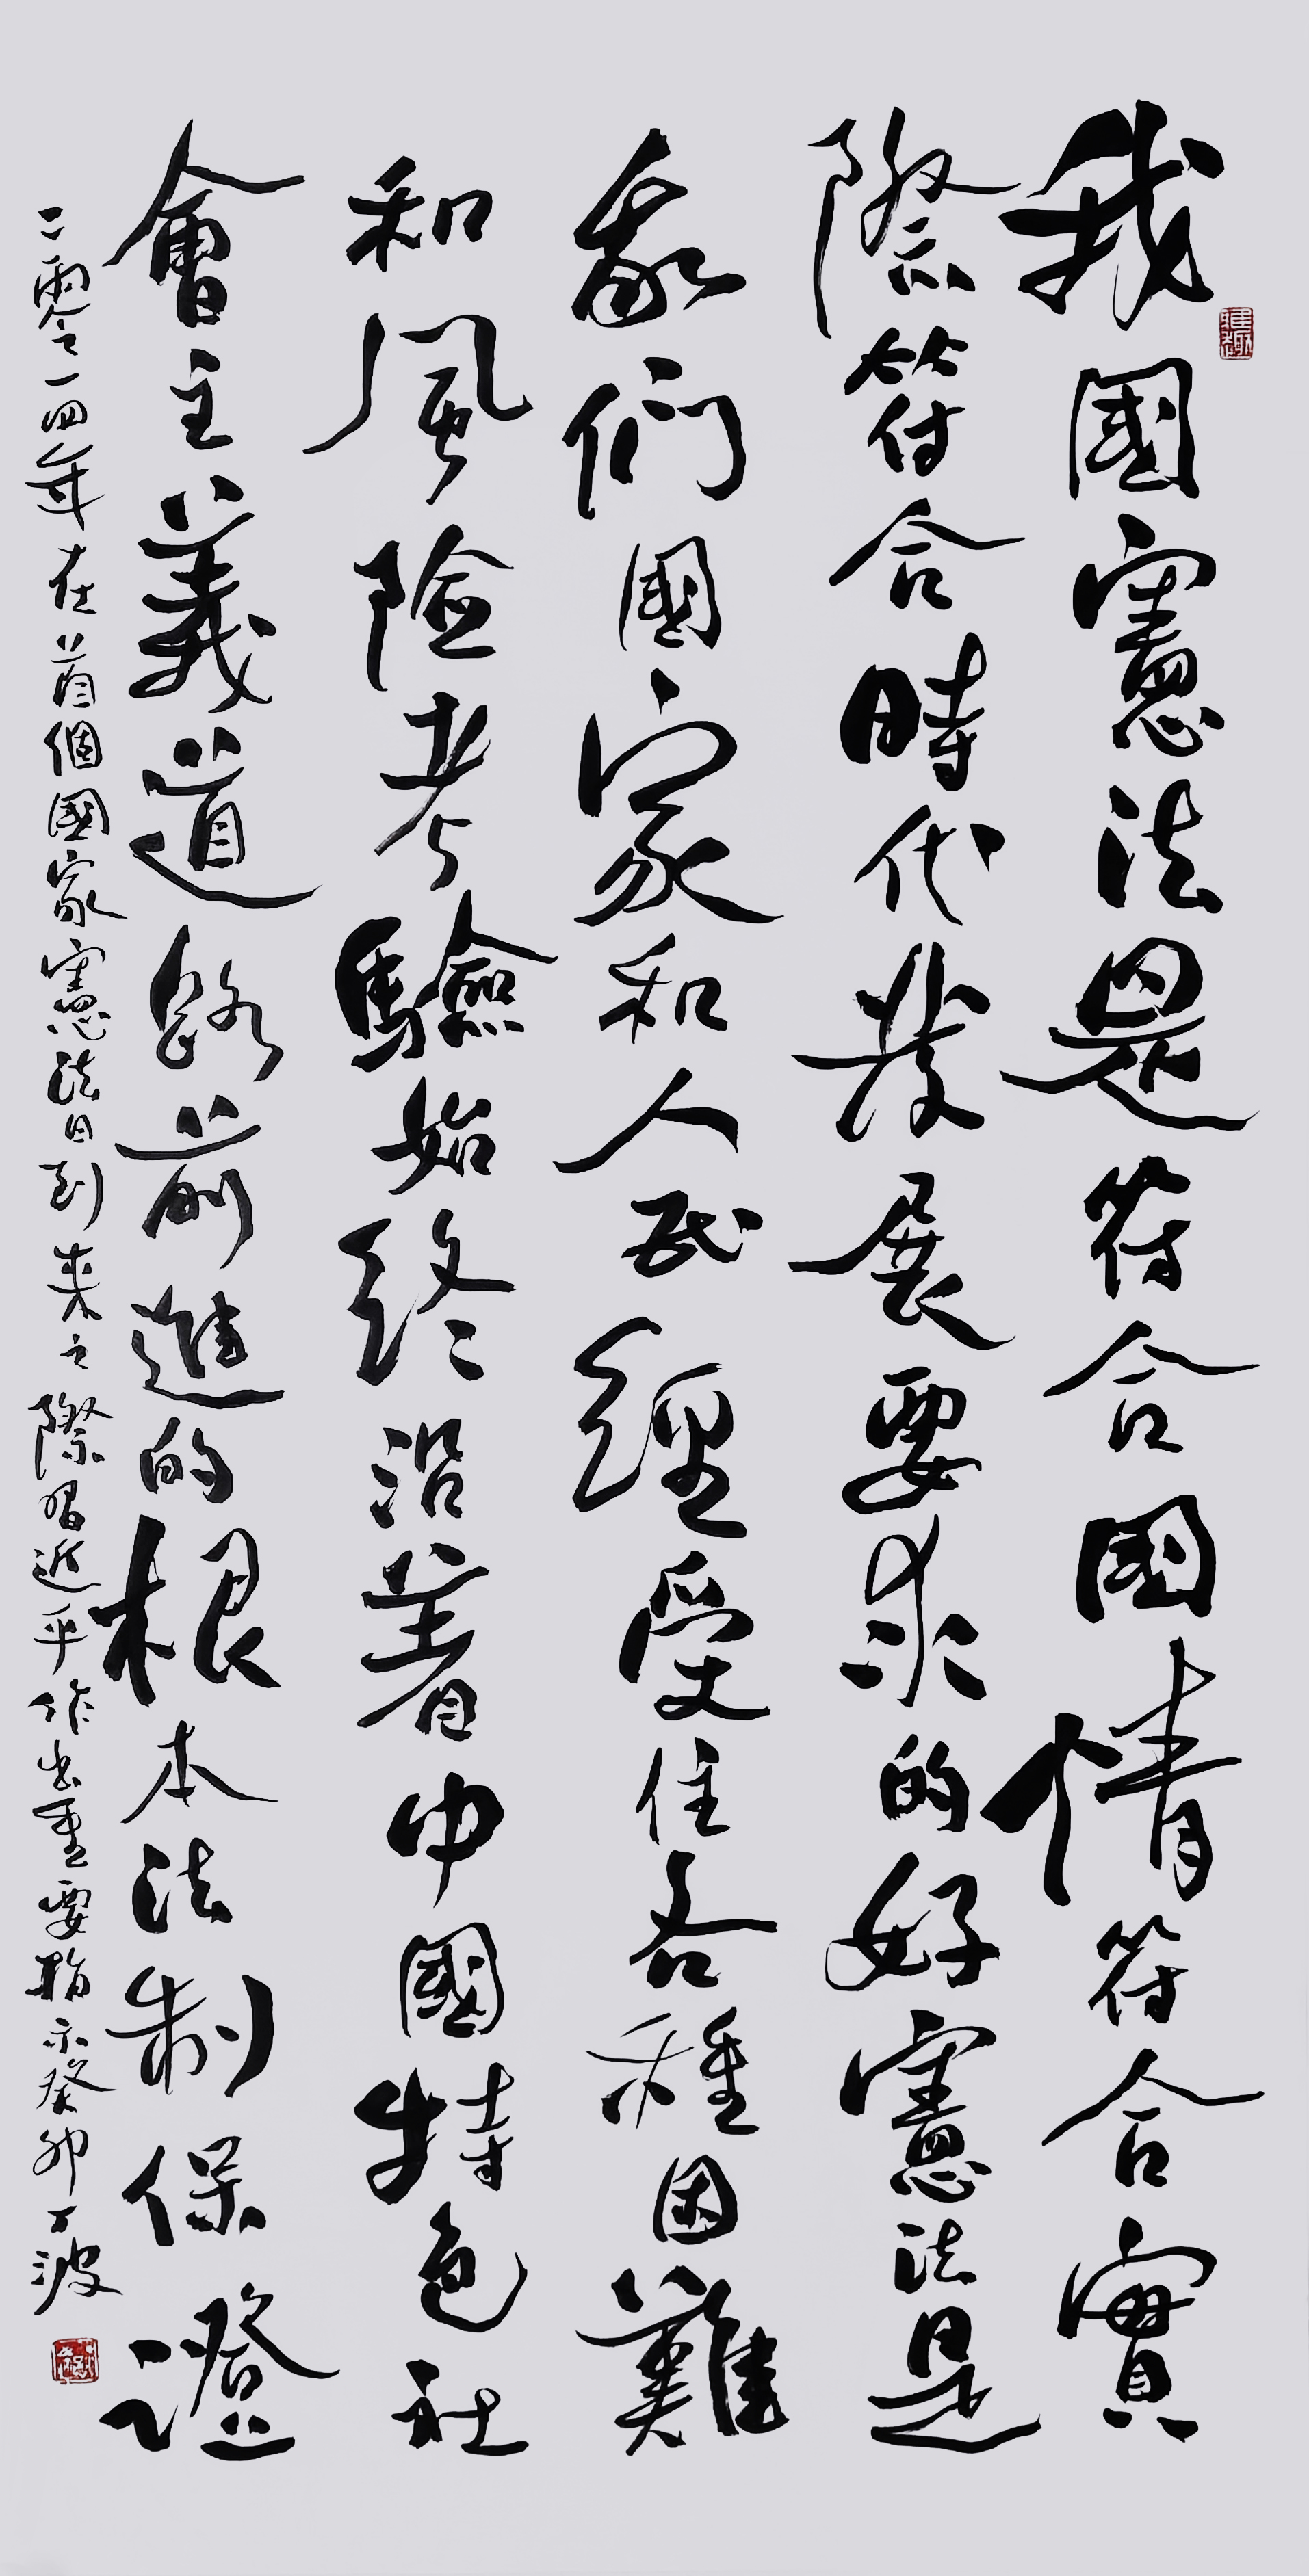 我國憲法是符合國情符合實
際符合時代發展要求的好憲法是
我們國家和人民經受住各種困難
和風險考驗始終沿着中國特色社
會主義道路前進的根本法制保證
二零一四年在首個國家憲法日到來之際習近平作出重要指示癸卯丁波